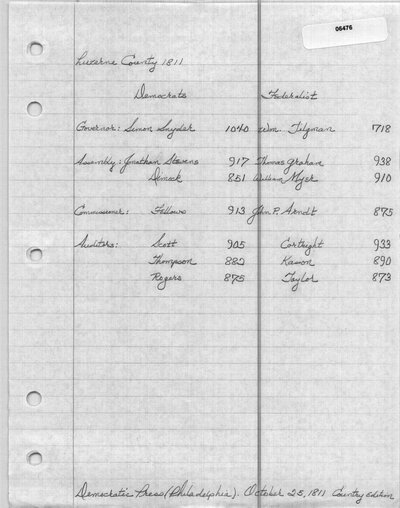 06476
Luzerne County 1811
Democrats Federalist
Governor: Simon Snyder 1040 Wm. Tilgman 718
Assembly: Jonathan Stevens 917 Thomas Graham 938
Dimick 851 William Myer 910
Commissioner: Fellows 913 John P. Arndt 875
Auditors: Scott 905 Cortright 933
Thompson 882 890
Rogers 875 Taylor 873
Democratic Press (Philadelphia). October 25, 1811 Country edition